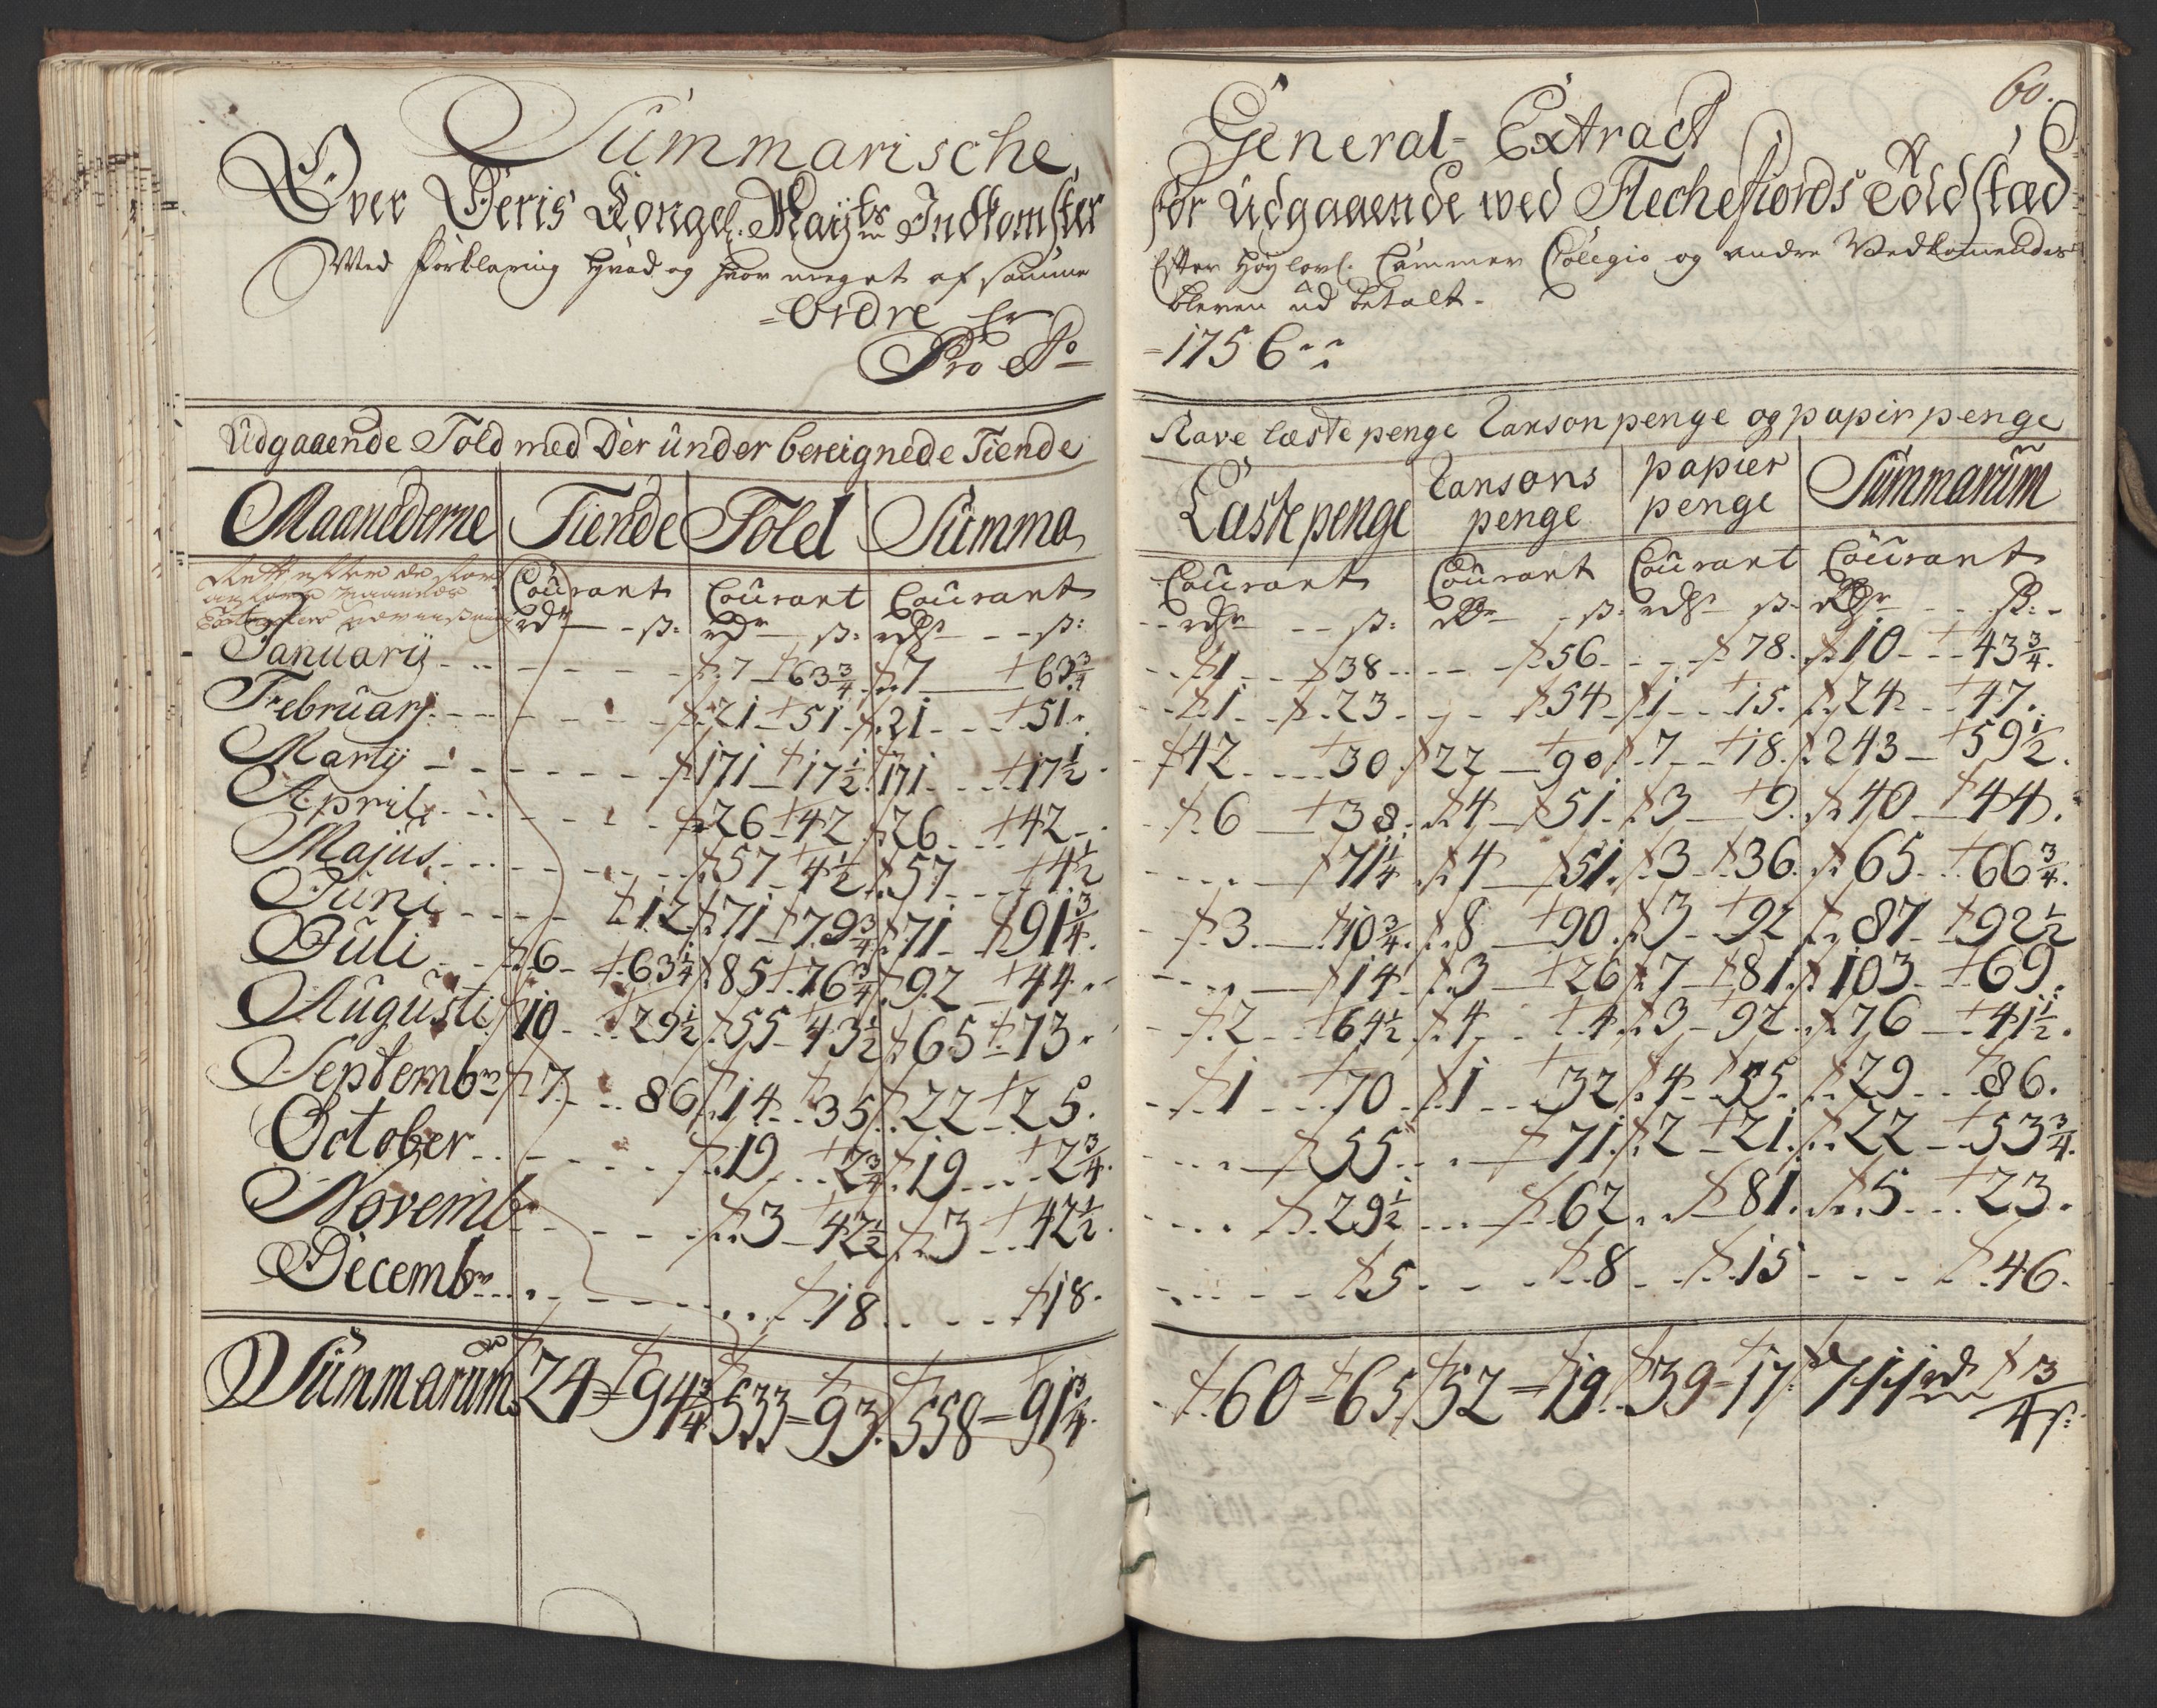 60.
Summarische
General-Extract
Over Deris Kongel. Mayts Indkomster
for Udgaaende wed Flechefiords Toldsted
Med forklaring hvad og hvor meget af samme
Efter Höylovl. Cammer Colegio og andre Vedkommendes
=Ordre Er
bleven ud betalt-
Pro Ao
=1756
Udgaaende Told med Der under bereignede Tiende
Rare læstepenge Ranson penge og papir penge
Maanederne Tiende Told Summa
Læstepenge Ransons penge papier penge Summarum
Courant Courant Courant
Courant Courant Courant Courant
rdr ß: rdr ß: rdr ß:
rdr ß: rdr ß: rdr ß: rdr ß:
Januarij 7 63 3/4 7 63 3/4
1 38 56 78 10 43 3/4
Februarj 21 51 21 51
1 23 54 1 15 24 47
Martij 171 17 1/2 171 17 1/2
42 30 22 90 7 18 243 59 1/2
April 26 42 26 42
6 38 4 51 3 9 40 44
Majus 57 4 1/2 57 4 1/2
71 1/4 4 51 3 36 65 66 3/4
Juni 12 71 79 3/4 71 91 3/4
3 10 3/4 8 90 3 92 87 92 1/2
Juli 6 63 1/4 85 76 3/4 92 44
14 3 26 7 81 103 69
Augusti 10 29 1/2 55 43 1/2 65 73
2 64 1/2 4 4 3 92 76 41 1/2
Septembr 7 86 14 35 22 25
1 70 1 32 4 55 29 86
October 19 2 3/4 19 2 3/4
55 71 2 21 22 53 3/4
Novembr 3 42 1/2 3 42 1/2
29 1/2 62 81 5 23
Decembr 18 18
5 8 15 46
Summarum 24=94 3/4 533=93 558=91 3/4
60=65 52=19 39=17 711 rdr 3/4 ß